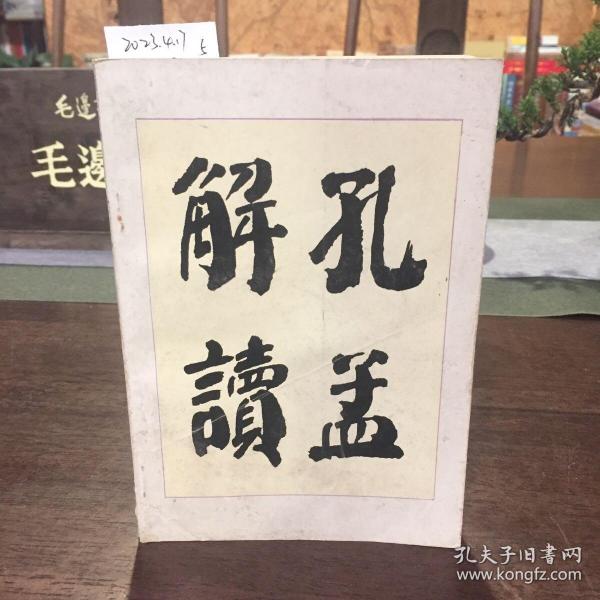 2023.4.17 5
毛邊
毛邊
孔孟
解讀
孔夫子旧书网
www.kongfz.com